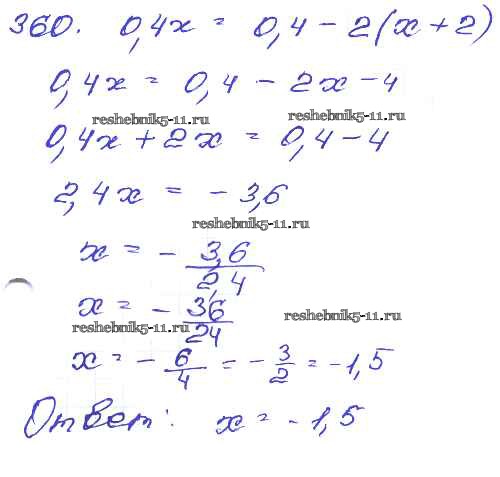 360. 0,4x = 0,4 - 2(x + 2)
0,4x = 0,4 - 2x - 4
reshebnik5-11.ru reshebnik5-11.ru
0,4x + 2x = 0,4 - 4
2,4x = - 3,6
reshebnik5-11.ru
x = - 3,6/2,4
x = - 36/24
reshebnik5-11.ru reshebnik5-11.ru
x = - 6/4 = - 3/2 = -1,5
Ответ: x = - 1,5